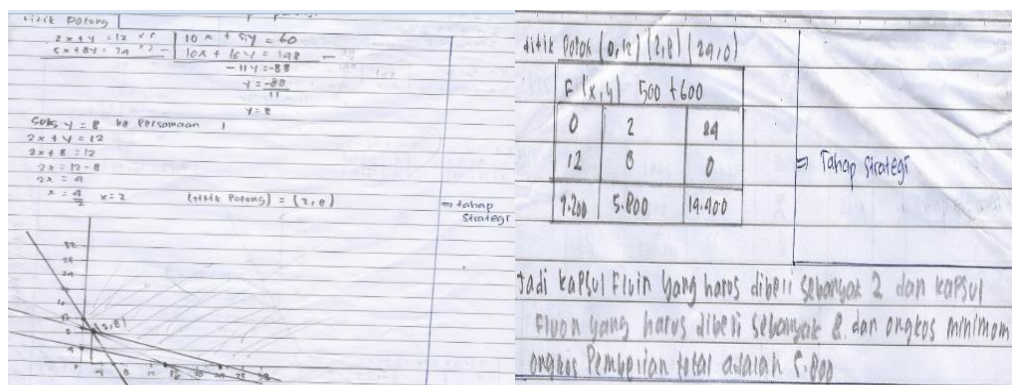 titik Potong
2x+y = 12 x5 | 10x + 5y = 60
5x+8y = 74 x2 | 10x + 16y = 148 -
-11y = -88
y = -88
11
y = 8
Subs y = 8 ke Persamaan 1
2x+y = 12
2x+8 = 12
2x = 12-8
2x = 4
x = 4
2
x = 2
(titik Potong) = (2,8)
⇒ tahap
Strategi
32
28
24
(2,8)
titik Potok (0,12) (2,8) (24,0)
F(x,y) 500 + 600
0 2 24
12 8 0
7.200 5.800 14.400
⇒ Tahap Strategi
Jadi kapsul Fluin yang harus dibeli sebanyak 2 dan kapsul
Fluon yang harus dibeli sebanyak 8. dan ongkos minimom
ongkos Pembelian total adalah 5.800